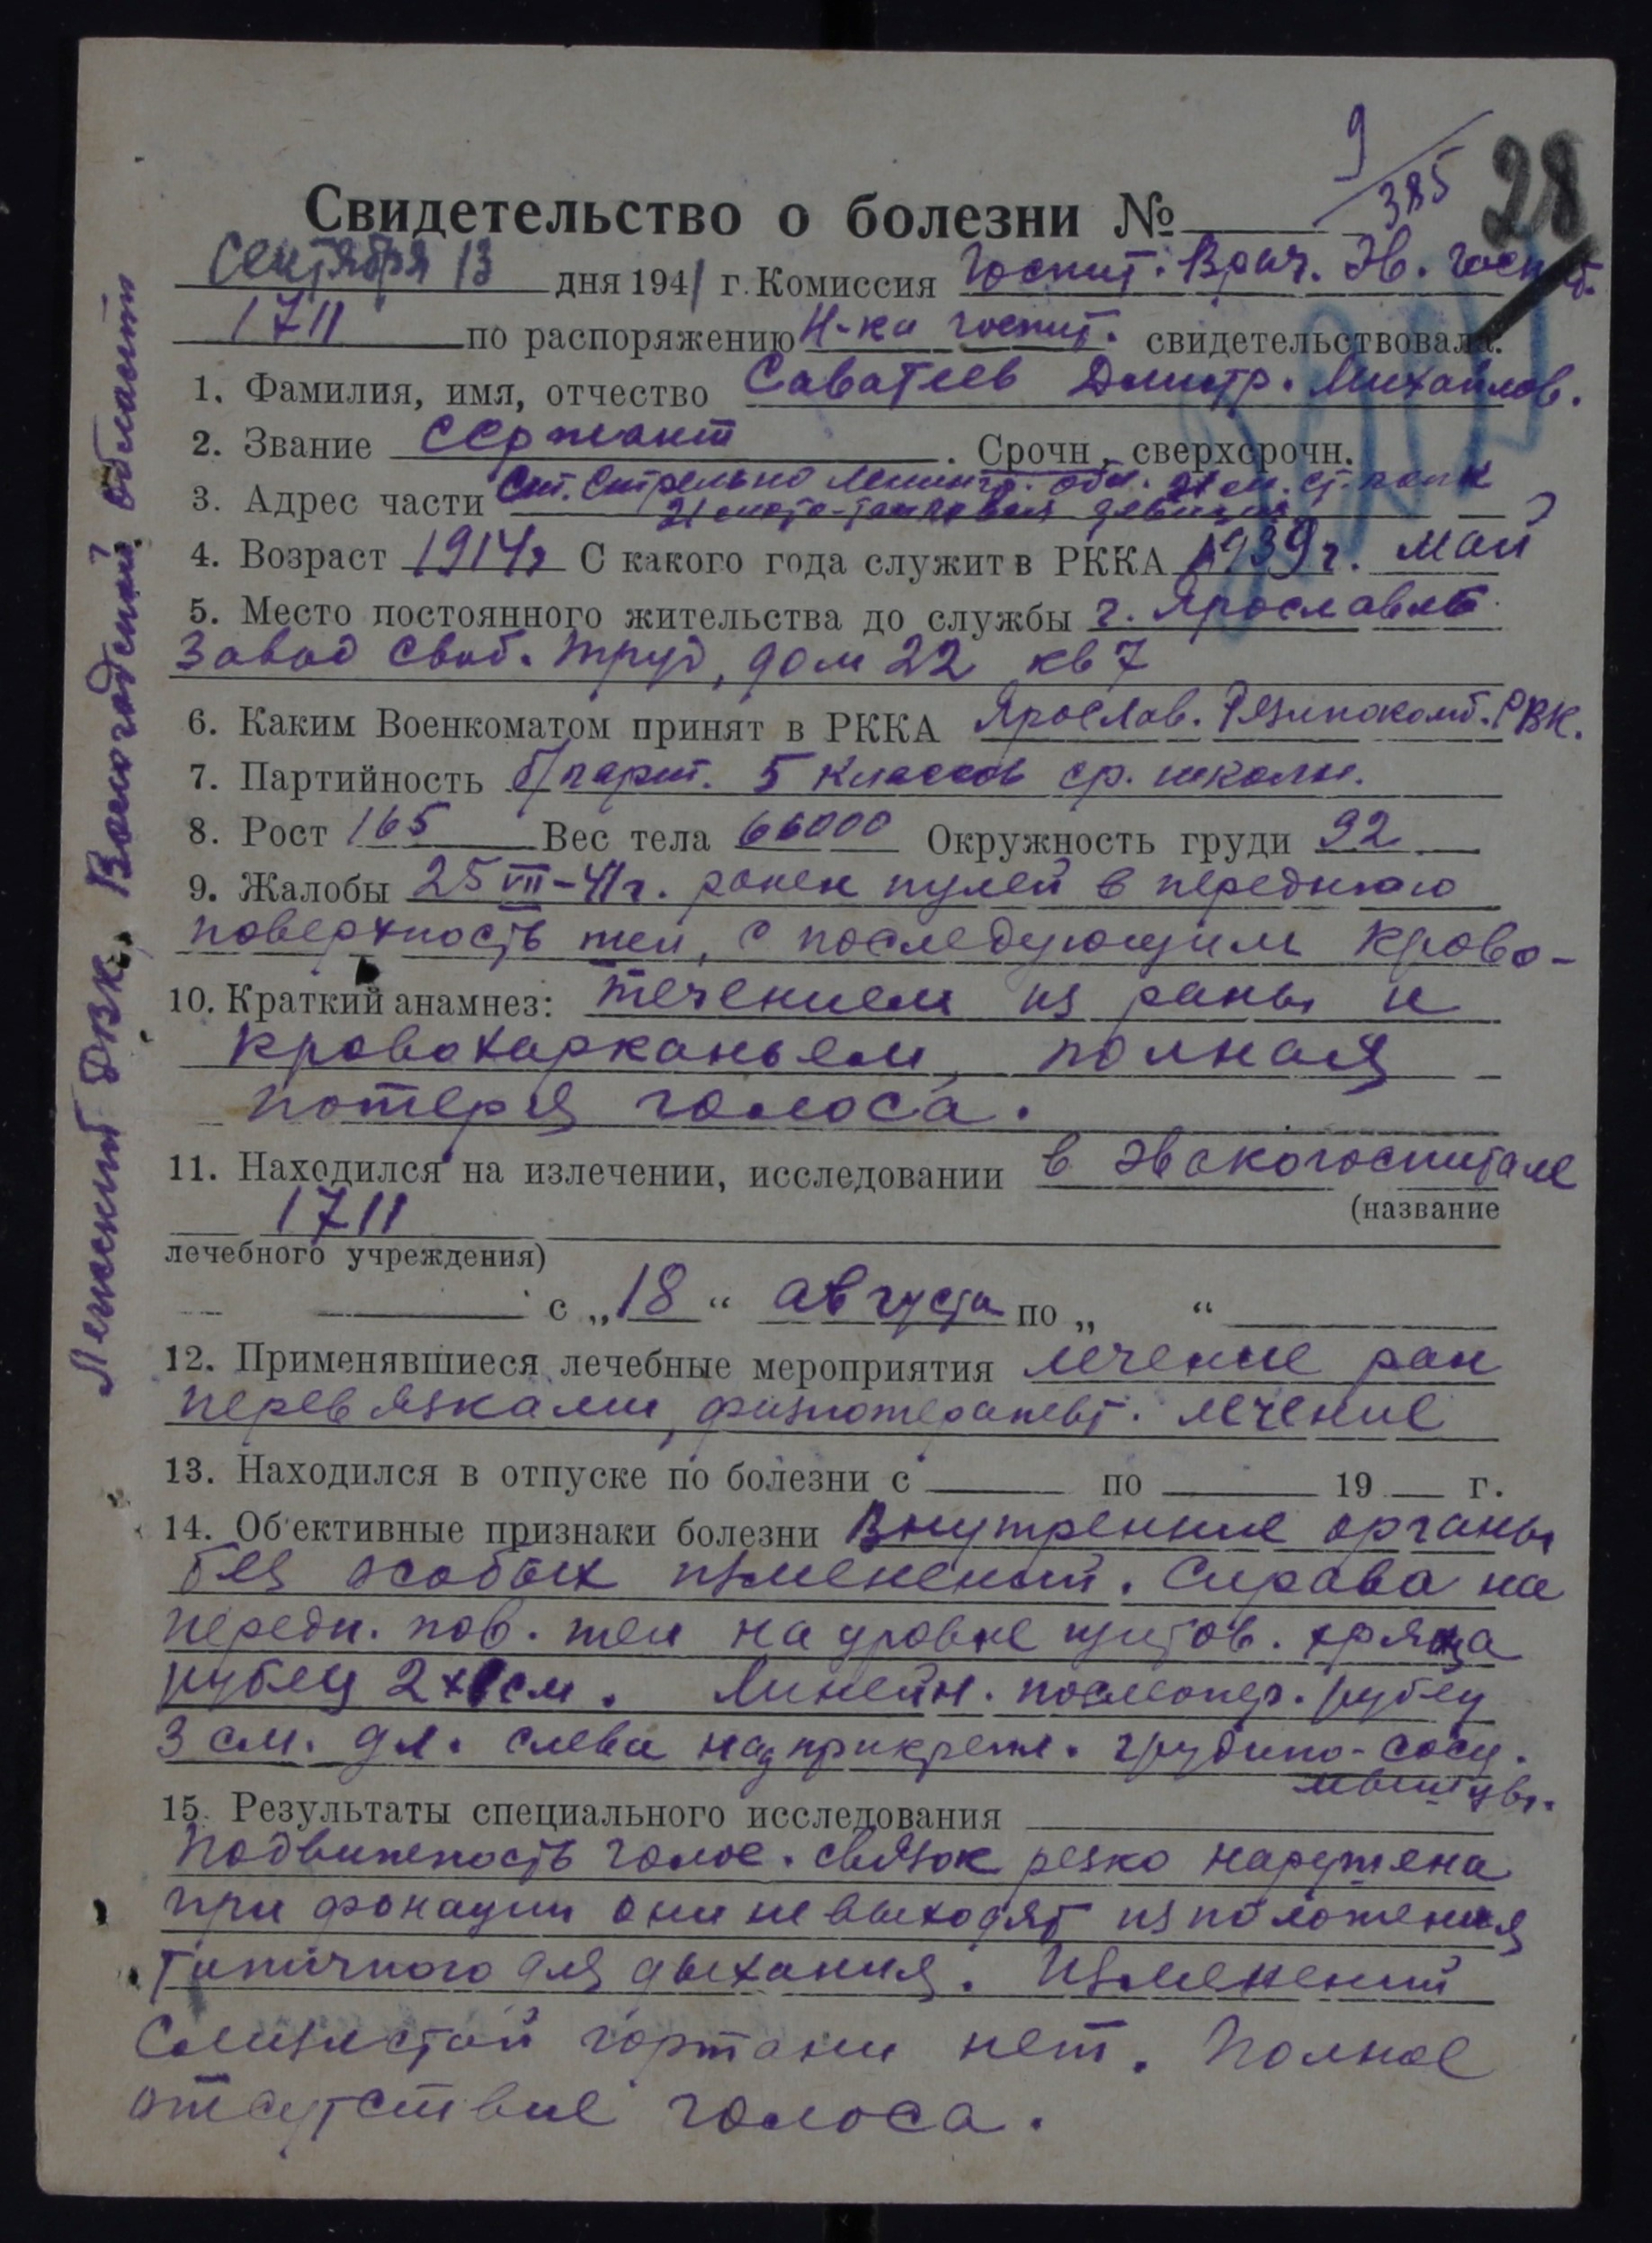 9/385
28
Свидетельство о болезни №
Сентября 13 дня 1941 г. Комиссия Госпит. Врач. Эв. Госпит.
1711 по распоряжению Н-ка госпит. свидетельствовала:
1. Фамилия, имя, отчество Саватеев Дмитр. Михайлов.
2. Звание сержант. Срочн., сверхсрочн.
3. Адрес части Ст. Стрельно Ленингр. обл. 21 м. ст. полк
21 мото-танковая дивизия
4. Возраст 1914 г С какого года служит в РККА 1939 г. май
5. Место постоянного жительства до службы г. Ярославль
Завод Своб. Труд, дом 22 кв 7
6. Каким Военкоматом принят в РККА Ярослав. Резинокомб. РВК.
7. Партийность б/парт. 5 классов ср. школы.
8. Рост 165 Вес тела 66000 Окружность груди 92
9. Жалобы 25 VII-41 г. ранен пулей в переднюю
поверхность шеи, с последующим крово-
10. Краткий анамнез: течением из раны и
кровохарканьем, полная
потеря голоса.
11. Находился на излечении, исследовании в эвакогоспитале
(название
1711
лечебного учреждения)
с „18“ августа по „ “
12. Применявшиеся лечебные мероприятия лечение ран
перевязками, физиотерапевт. лечение
13. Находился в отпуске по болезни с по 19 г.
14. Об'ективные признаки болезни Внутренние органы
без особых изменений. Справа на
передн. пов. шеи на уровне щитов. хряща
рубец 2х1 см. Линейн. послеопер. рубец
3 см. дл. слева над прикрепл. грудино-сосц.
мышцы.
15. Результаты специального исследования
Подвижность голос. связок резко нарушена
при фонации они не выходят из положения
типичного для дыхания. Изменений
слизистой гортани нет. Полное
отсутствие голоса.
Лежский РВК, Вологодской области